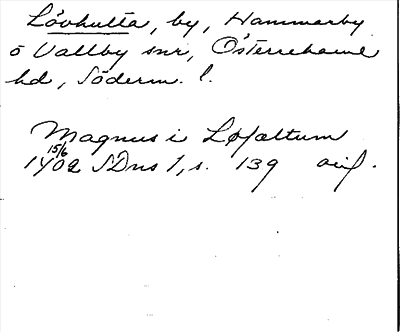 Lövhulta, by, Hammarby
o Vallby snr, Österrekarne
hd, Söderm. l.
Magnus i Løfaltum
15/6
1402 SDns 1, s. 139 avif.